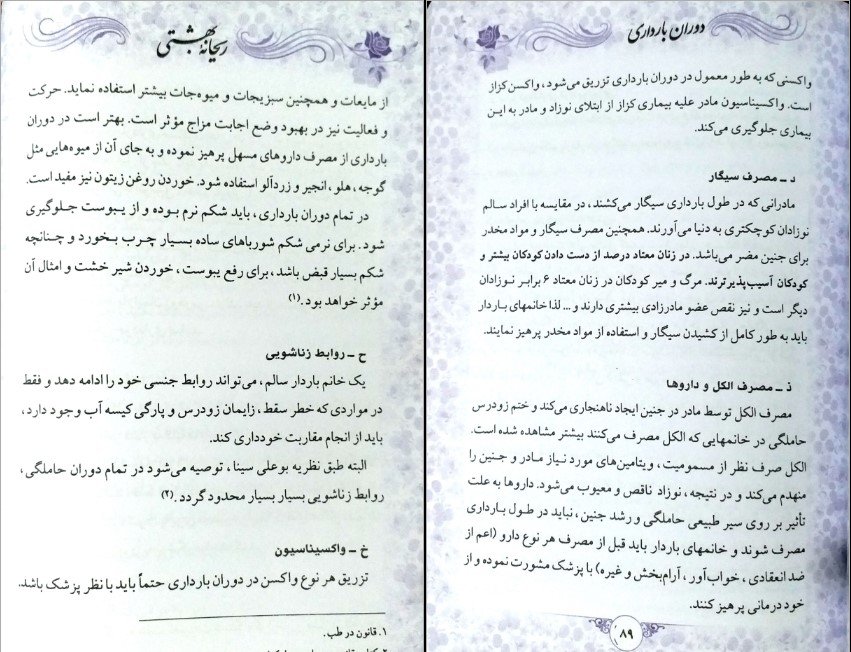 ریحانه بهشتی
از مایعات و همچنین سبزیجات و میوه‌جات بیشتر استفاده نماید. حرکت
و فعالیت نیز در بهبود وضع اجابت مزاج مؤثر است. بهتر است در دوران
بارداری از مصرف داروهای مسهل پرهیز نموده و به جای آن از میوه‌هایی مثل
گوجه، هلو، انجیر و زردآلو استفاده شود. خوردن روغن زیتون نیز مفید است.
در تمام دوران بارداری، باید شکم نرم بوده و از یبوست جلوگیری
شود. برای نرمی شکم شورباهای ساده بسیار چرب بخورد و چنانچه
شکم بسیار قبض باشد، برای رفع یبوست، خوردن شیر خشت و امثال آن
مؤثر خواهد بود.(۱)
ح ـ روابط زناشویی
یک خانم باردار سالم، می‌تواند روابط جنسی خود را ادامه دهد و فقط
در مواردی که خطر سقط، زایمان زودرس و پارگی کیسه آب وجود دارد،
باید از انجام مقاربت خودداری کند.
البته طبق نظریه بوعلی سینا، توصیه می‌شود در تمام دوران حاملگی،
روابط زناشویی بسیار بسیار محدود گردد.(۲)
خ ـ واکسیناسیون
تزریق هر نوع واکسن در دوران بارداری حتماً باید با نظر پزشک باشد.
۱. قانون در طب.
دوران بارداری
واکسنی که به طور معمول در دوران بارداری تزریق می‌شود، واکسن کزاز
است. واکسیناسیون مادر علیه بیماری کزاز از ابتلای نوزاد و مادر به این
بیماری جلوگیری می‌کند.
د ـ مصرف سیگار
مادرانی که در طول بارداری سیگار می‌کشند، در مقایسه با افراد سالم
نوزادان کوچکتری به دنیا می‌آورند. همچنین مصرف سیگار و مواد مخدر
برای جنین مضر می‌باشد. در زنان معتاد درصد از دست دادن کودکان بیشتر و
کودکان آسیب‌پذیرترند. مرگ و میر کودکان در زنان معتاد ۶ برابر نوزادان
دیگر است و نیز نقص عضو مادرزادی بیشتری دارند و... لذا خانمهای باردار
باید به طور کامل از کشیدن سیگار و استفاده از مواد مخدر پرهیز نمایند.
ذ ـ مصرف الکل و داروها
مصرف الکل توسط مادر در جنین ایجاد ناهنجاری می‌کند و ختم زودرس
حاملگی در خانمهایی که الکل مصرف می‌کنند بیشتر مشاهده شده است.
الکل صرف نظر از مسمومیت، ویتامین‌های مورد نیاز مادر و جنین را
منهدم می‌کند و در نتیجه، نوزاد ناقص و معیوب می‌شود. داروها به علت
تأثیر بر روی سیر طبیعی حاملگی و رشد جنین، نباید در طول بارداری
مصرف شوند و خانمهای باردار باید قبل از مصرف هر نوع دارو (اعم از
ضد انعقادی، خواب‌آور، آرام‌بخش و غیره) با پزشک مشورت نموده و از
خود درمانی پرهیز کنند.
۸۹